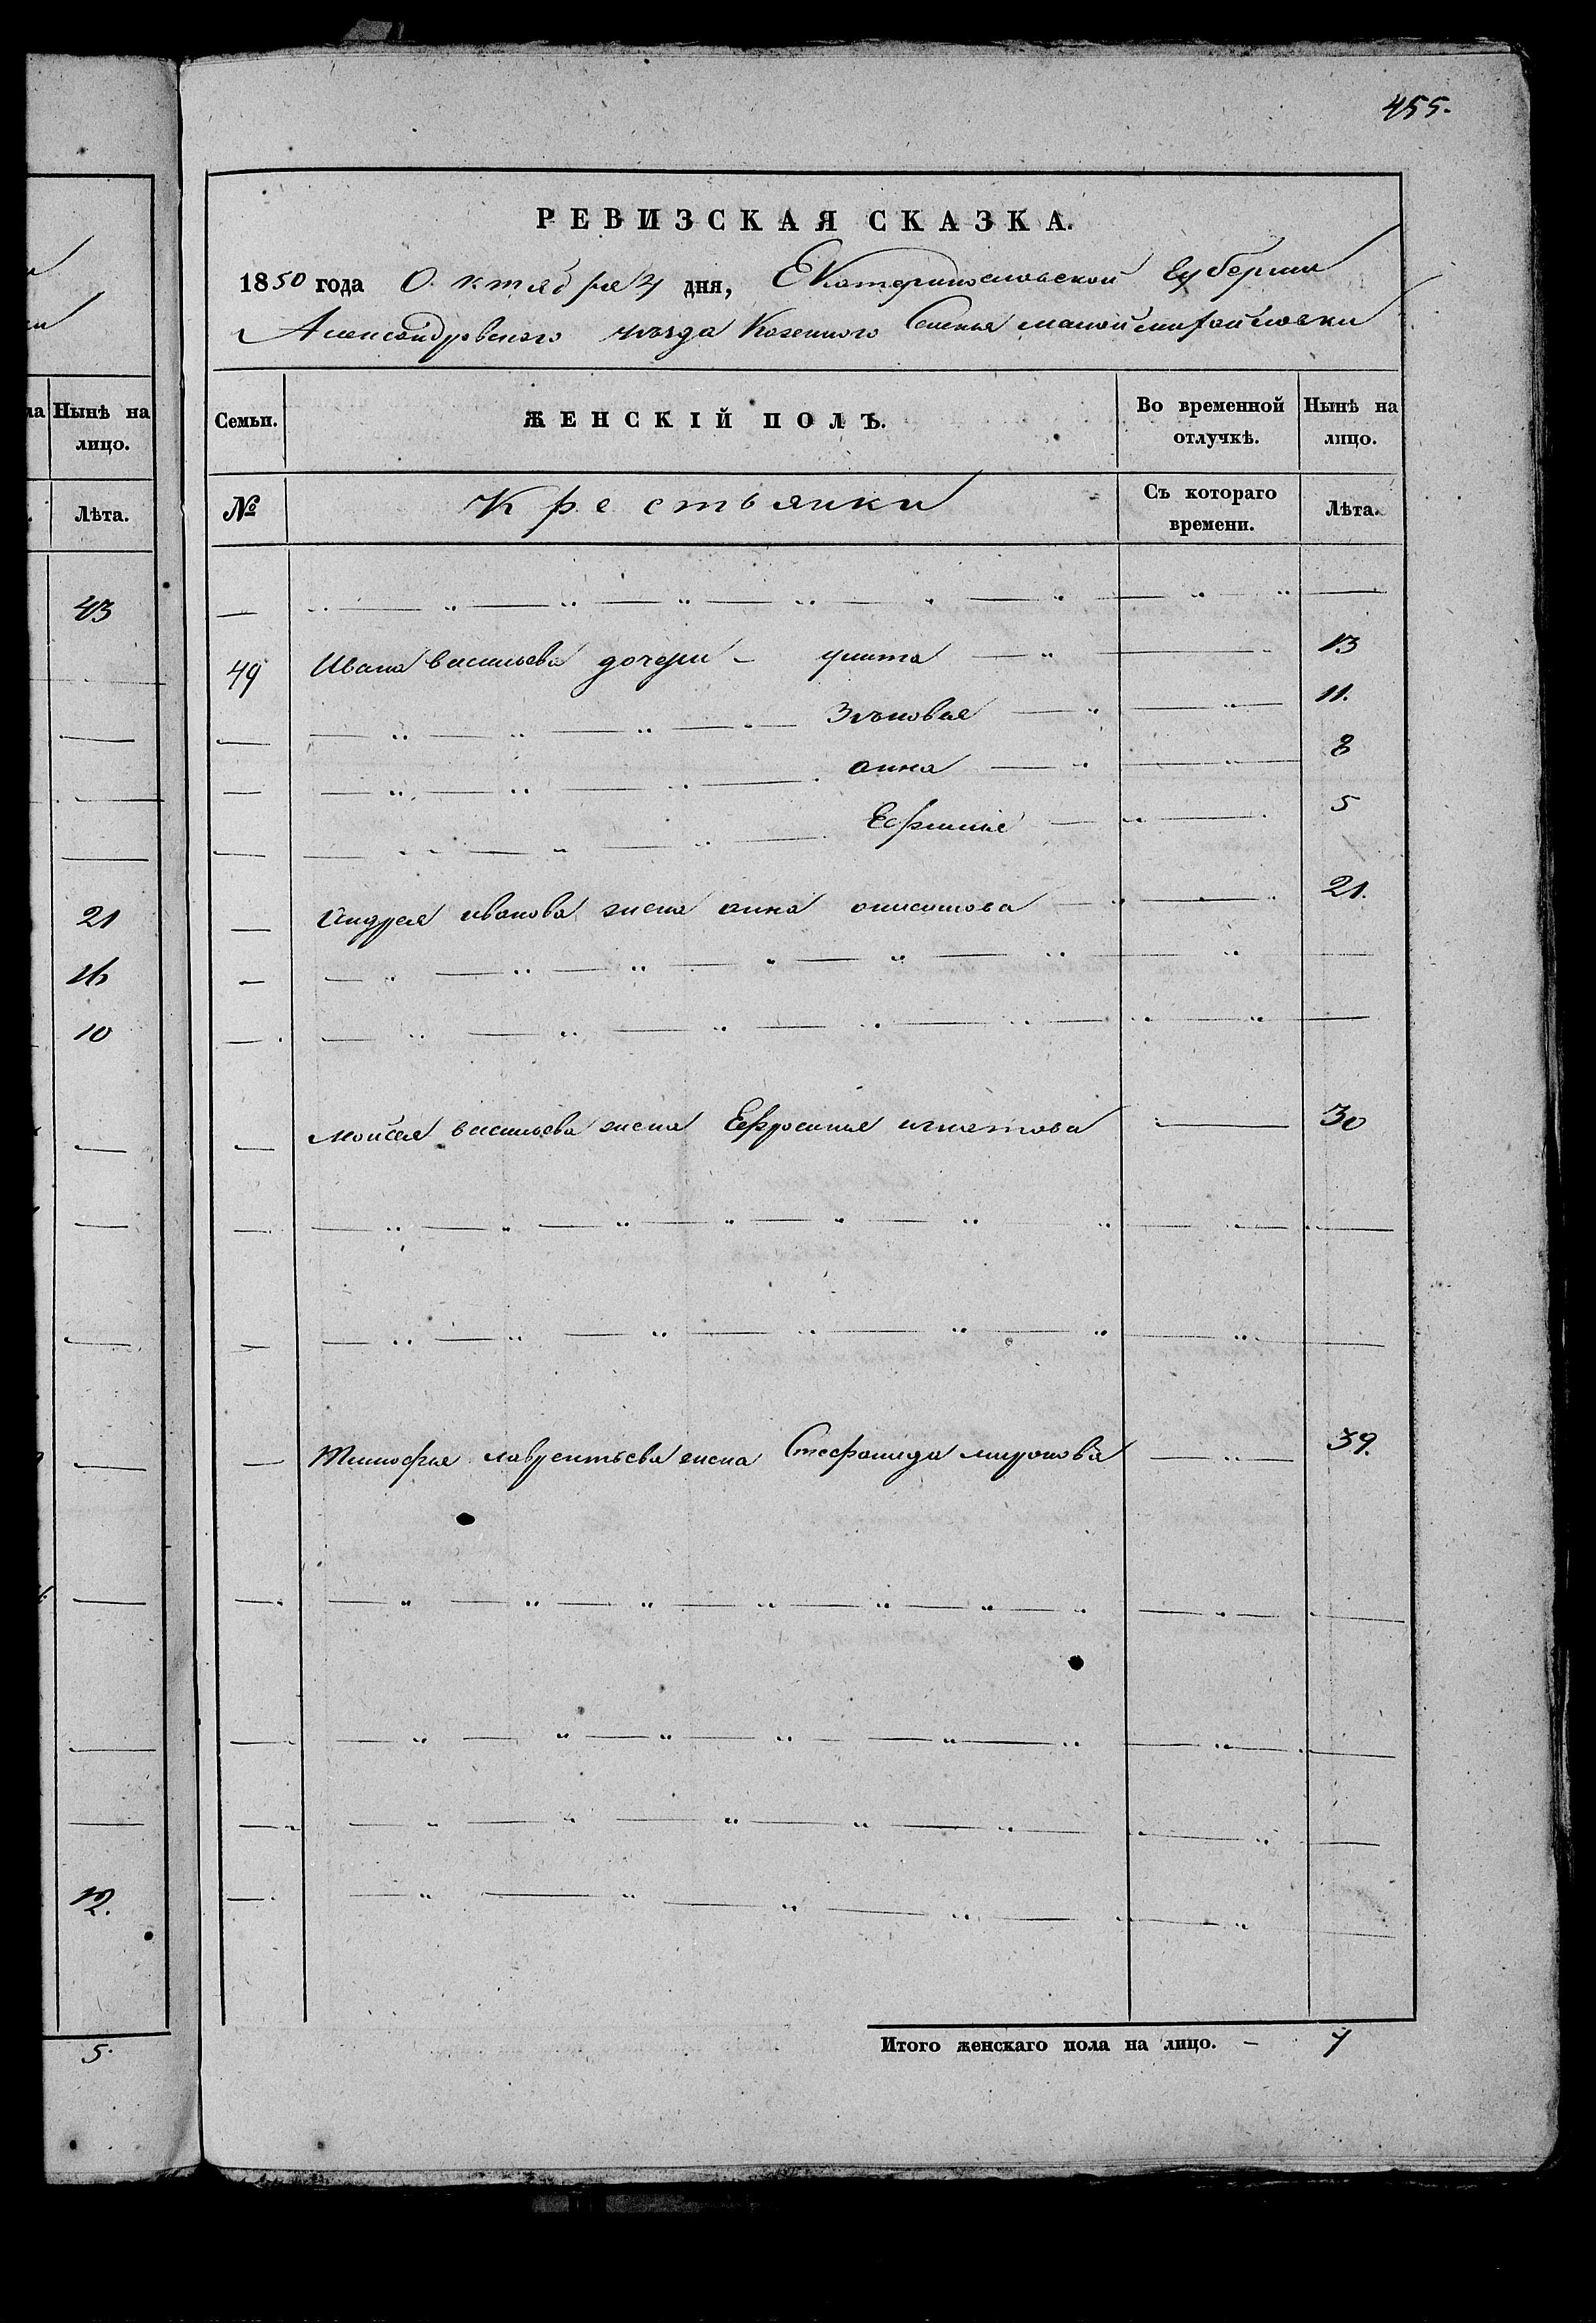 455.
РЕВИЗСКАЯ СКАЗКА.
1850 года Октября 4 дня, Екатеринославской Губернии
Александровского уѣзда Казенного Селенья малой михайловки
на Нынѣ на лицо.
Лѣта.
Семьи. ЖЕНСКІЙ ПОЛЪ. Во временной отлучкѣ. Нынѣ на лицо.
№ Крестьянки Съ котораго времени. Лѣта.
43
49 Ивана васильева дочери - улита 13
Зѣновья 11.
анна 8
Ефимия 5
21 Андрея иванова жена анна 21.
16
10
Мойсея васильева жена Ефросинья игнатова 30
Тимофея лаврентьева жена Стефанида миронова 39.
12.
Итого женскаго пола на лицо. - 7
5.